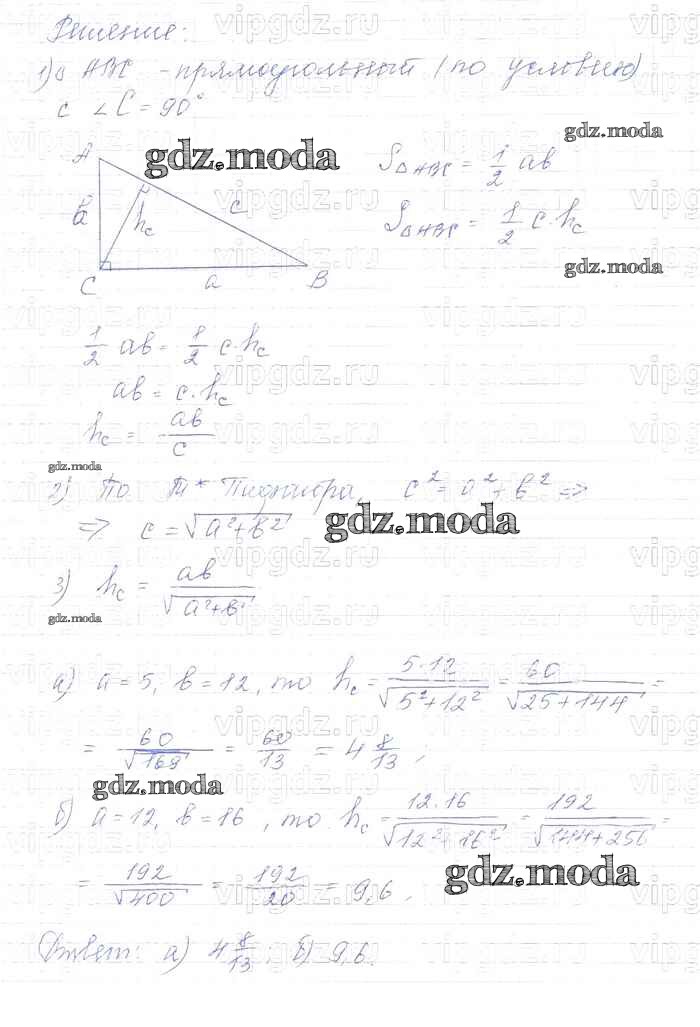 Решение:
1) △ ABC - прямоугольный (по условию)
с ∠C = 90°
gdz.moda
gdz.moda
A
b
h_c
c
C
a
B
S△ABC = 1/2 ab
S△ABC = 1/2 c·h_c
gdz.moda
1/2 ab = 1/2 c·h_c
ab = c·h_c
h_c = ab/c
gdz.moda
2) По т* Пифагора, c² = a² + b² =>
=> c = √(a²+b²)
gdz.moda
3) h_c = ab/√(a²+b²)
gdz.moda
а) a = 5, b = 12, то h_c = 5·12/√(5²+12²) = 60/√(25+144) =
= 60/√169 = 60/13 = 4 8/13;
gdz.moda
б) a = 12, b = 16, то h_c = 12·16/√(12²+16²) = 192/√(144+256) =
= 192/√400 = 192/20 = 9,6.
gdz.moda
Ответ: а) 4 8/13; б) 9,6.
vipgdz.ru